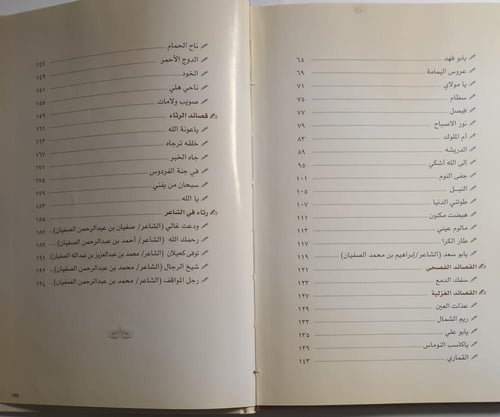 يابو فهد ٦٥
عروس اليمامة ٦٩
يا مولاي ٧١
سطام ٧٥
فيصل ٧٧
نور الاصباح ٧٩
أم الملوك ٨٣
الدريشه ٨٩
إلى الله أشكي ٩٣
جفى النوم ١٠١
الليل ١٠٥
طوتني الدنيا ١٠٧
هيضت مكنون ١١١
مالوم عيني ١١٣
طار الكرا ١١٧
يابو سعد (الشاعر/إبراهيم بن محمد الصفيان) ١١٩
القصائد الفصحى ١٢١
سفك الدمع ١٢٣
القصائد الغزلية ١٢٧
عذلت العين ١٢٩
ريم الشمال ١٣٣
يابو علي ١٣٥
ياكاسب النوماس ١٣٩
القماري ١٤٣
ناح الحمام ١٤٧
الدوج الأحمر ١٤٩
الخود ١٥١
ناحي هلي ١٥٥
صويب ولامات ١٥٩
قصائد الرثاء ١٦١
ياعونة الله ١٦٣
خلقه ترجاه ١٦٧
جاه الخبر ١٧١
في جنة الفردوس ١٧٥
سبحان من يفني ١٧٩
يا الله ١٨٣
رثاء في الشاعر ١٨٥
ودعت غالي (الشاعر/ سفيان بن عبدالرحمن الصفيان) ١٨٧
رحمك الله (الشاعر/ أحمد بن عبدالرحمن الصفيان) ١٨٩
توفى كحيلان (الشاعر/ محمد بن عبدالعزيز بن عبدالله الصفيان) ١٩١
شيخ الرجال (الشاعر/ محمد بن عبدالرحمن الصفيان) ١٩٢
رجل المواقف (الشاعر/ محمد بن عبدالرحمن الصفيان) ١٩٤